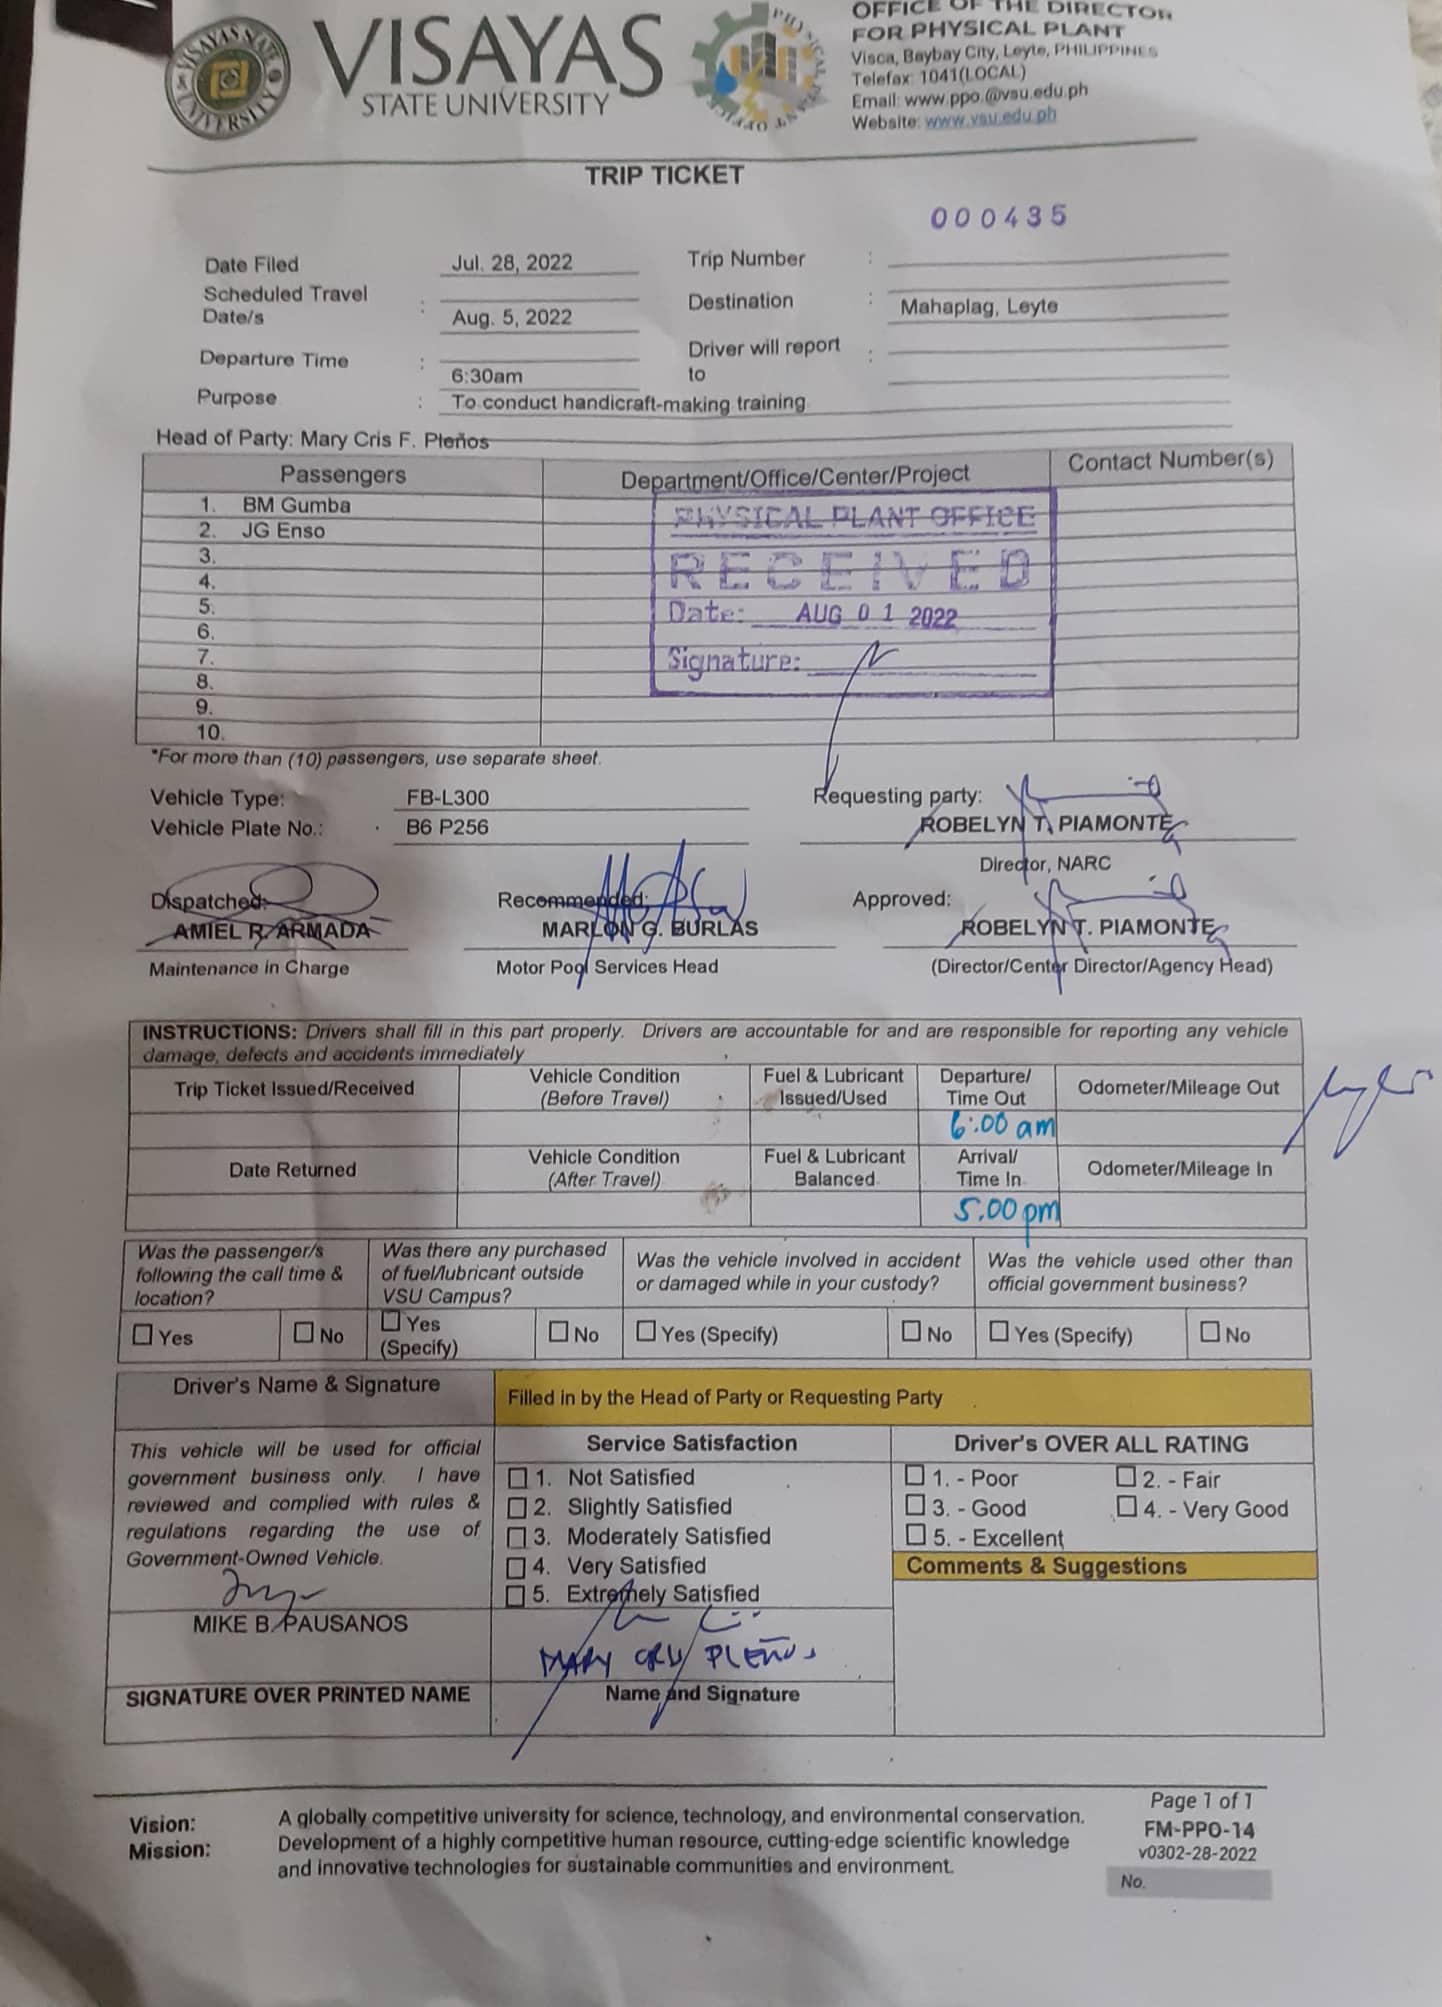 VISAYAS STATE UNIVERSITY
VISAYAS
STATE UNIVERSITY
PHYSICAL PLANT OFFICE
OFFICE OF THE DIRECTOR
FOR PHYSICAL PLANT
Visca, Baybay City, Leyte, PHILIPPINES
Telefax: 1041(LOCAL)
Email: www.ppo.@vsu.edu.ph
Website: www.vsu.edu.ph
TRIP TICKET
000435
Date Filed Jul. 28, 2022 Trip Number :
Scheduled Travel
Date/s : Aug. 5, 2022 Destination : Mahaplag, Leyte
Departure Time : 6:30am Driver will report
to :
Purpose : To conduct handicraft-making training
Head of Party: Mary Cris F. Pleños
Passengers Department/Office/Center/Project Contact Number(s)
1. BM Gumba
2. JG Enso
3.
4.
5.
6.
7.
8.
9.
10.
PHYSICAL PLANT OFFICE
RECEIVED
Date: AUG 01 2022
Signature:
*For more than (10) passengers, use separate sheet.
Vehicle Type: FB-L300 Requesting party:
Vehicle Plate No.: B6 P256 ROBELYN T. PIAMONTE
Director, NARC
Dispatched: Recommended: Approved:
AMIEL R. ARMADA MARLON G. BURLAS ROBELYN T. PIAMONTE
Maintenance in Charge Motor Pool Services Head (Director/Center Director/Agency Head)
INSTRUCTIONS: Drivers shall fill in this part properly. Drivers are accountable for and are responsible for reporting any vehicle
damage, defects and accidents immediately
Trip Ticket Issued/Received Vehicle Condition
(Before Travel) Fuel & Lubricant
Issued/Used Departure/
Time Out Odometer/Mileage Out
6:00 am
Date Returned Vehicle Condition
(After Travel) Fuel & Lubricant
Balanced Arrival/
Time In Odometer/Mileage In
5:00 pm
Was the passenger/s
following the call time &
location?
Was there any purchased
of fuel/lubricant outside
VSU Campus?
Was the vehicle involved in accident
or damaged while in your custody?
Was the vehicle used other than
official government business?
Yes No Yes
(Specify) No Yes (Specify) No Yes (Specify) No
Driver's Name & Signature Filled in by the Head of Party or Requesting Party
This vehicle will be used for official
government business only. I have
reviewed and complied with rules &
regulations regarding the use of
Government-Owned Vehicle.
MIKE B. PAUSANOS
SIGNATURE OVER PRINTED NAME
Service Satisfaction
1. Not Satisfied
2. Slightly Satisfied
3. Moderately Satisfied
4. Very Satisfied
5. Extremely Satisfied
MARY CRIS PLEÑOS
Name and Signature
Driver's OVER ALL RATING
1. - Poor 2. - Fair
3. - Good 4. - Very Good
5. - Excellent
Comments & Suggestions
Vision: A globally competitive university for science, technology, and environmental conservation.
Mission: Development of a highly competitive human resource, cutting-edge scientific knowledge
and innovative technologies for sustainable communities and environment.
Page 1 of 1
FM-PPO-14
v0302-28-2022
No.